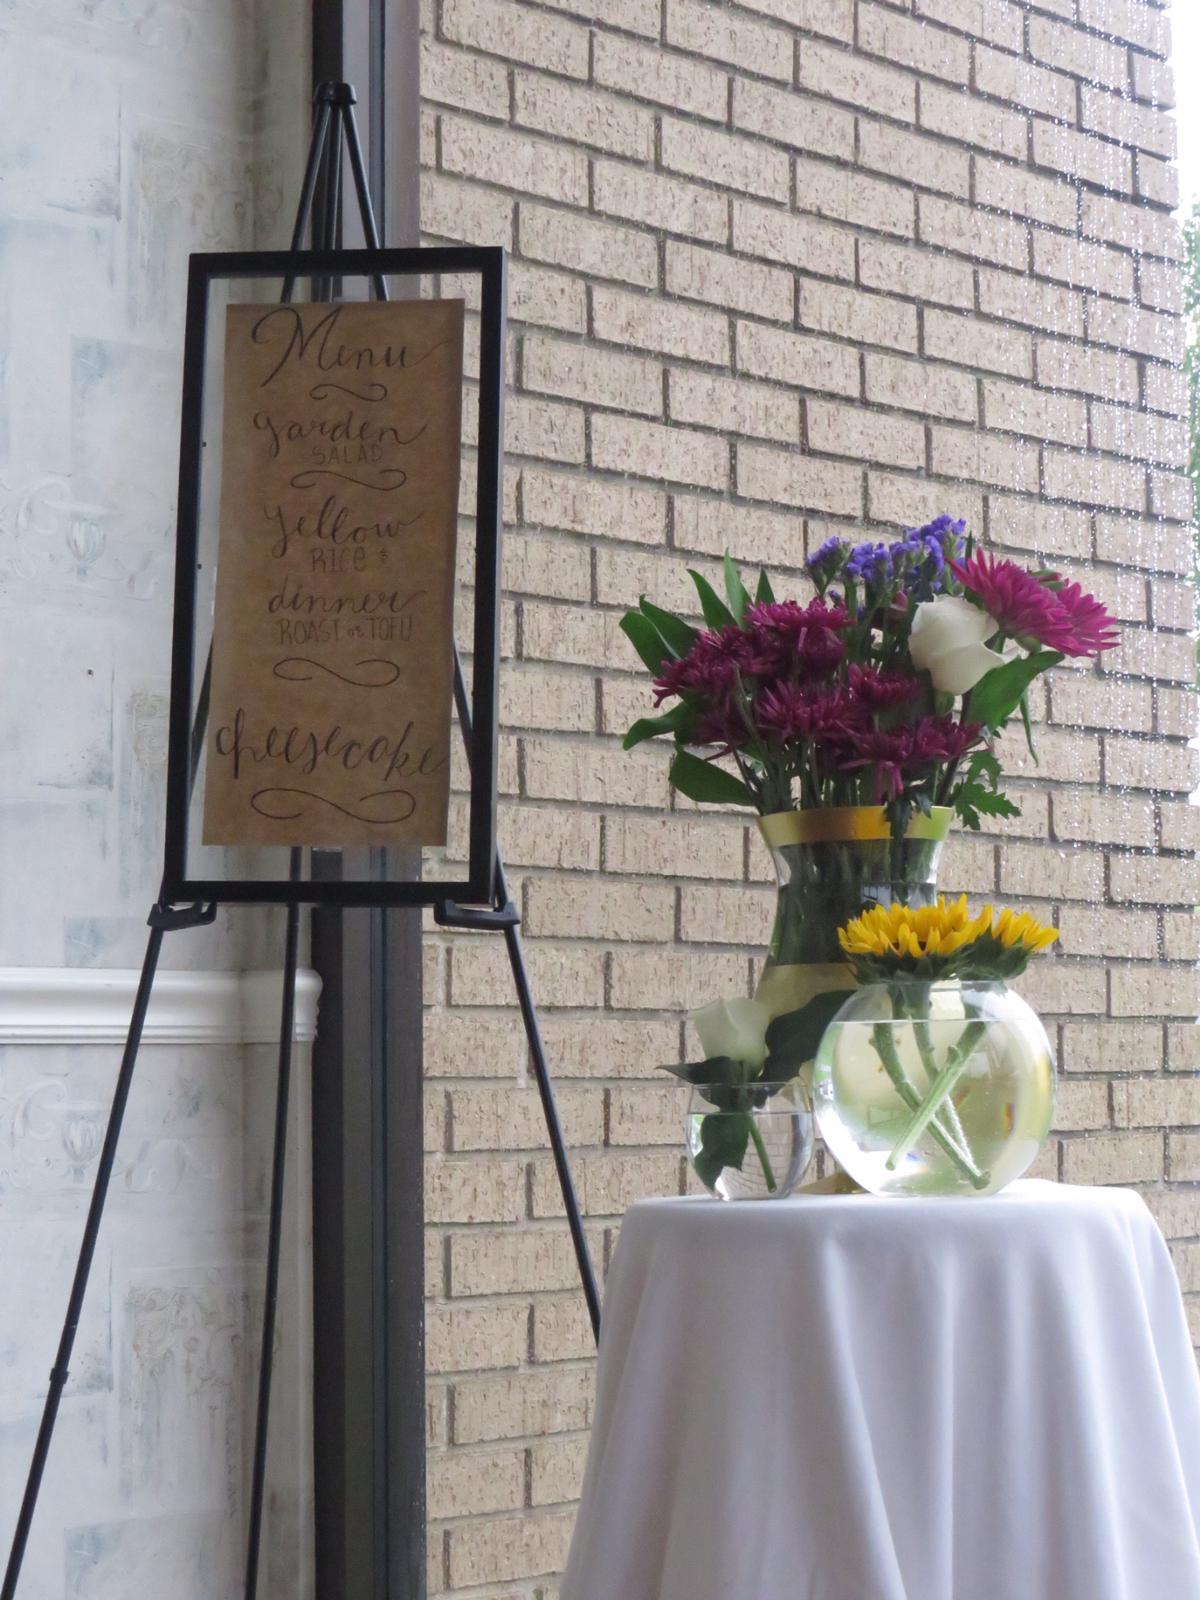 Menu
garden
SALAD
yellow
RICE &
dinner
ROAST or TOFU
cheesecake